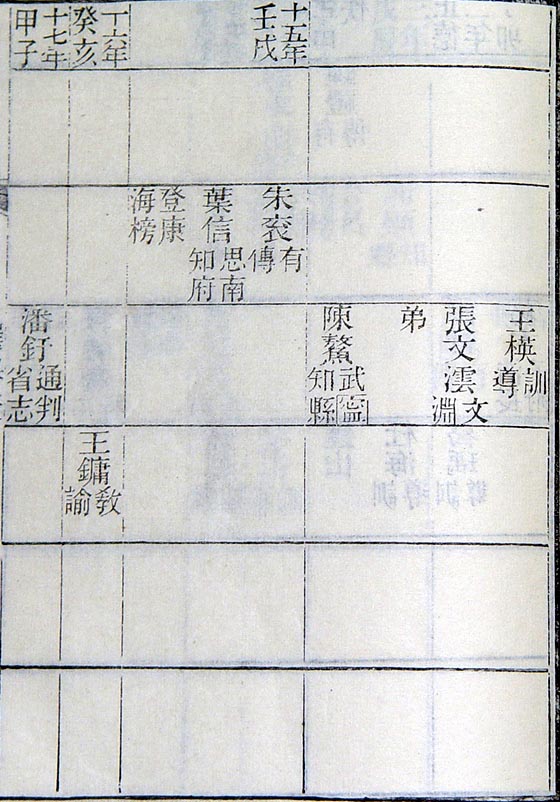 十五年
壬戌
十六年
癸亥
十七年
甲子
朱衮有傳
葉信思南知府
登康海榜
王楧訓導
張文澐文淵
弟
陳鰲武寧知縣
潘釪通判省志
王鏞教諭